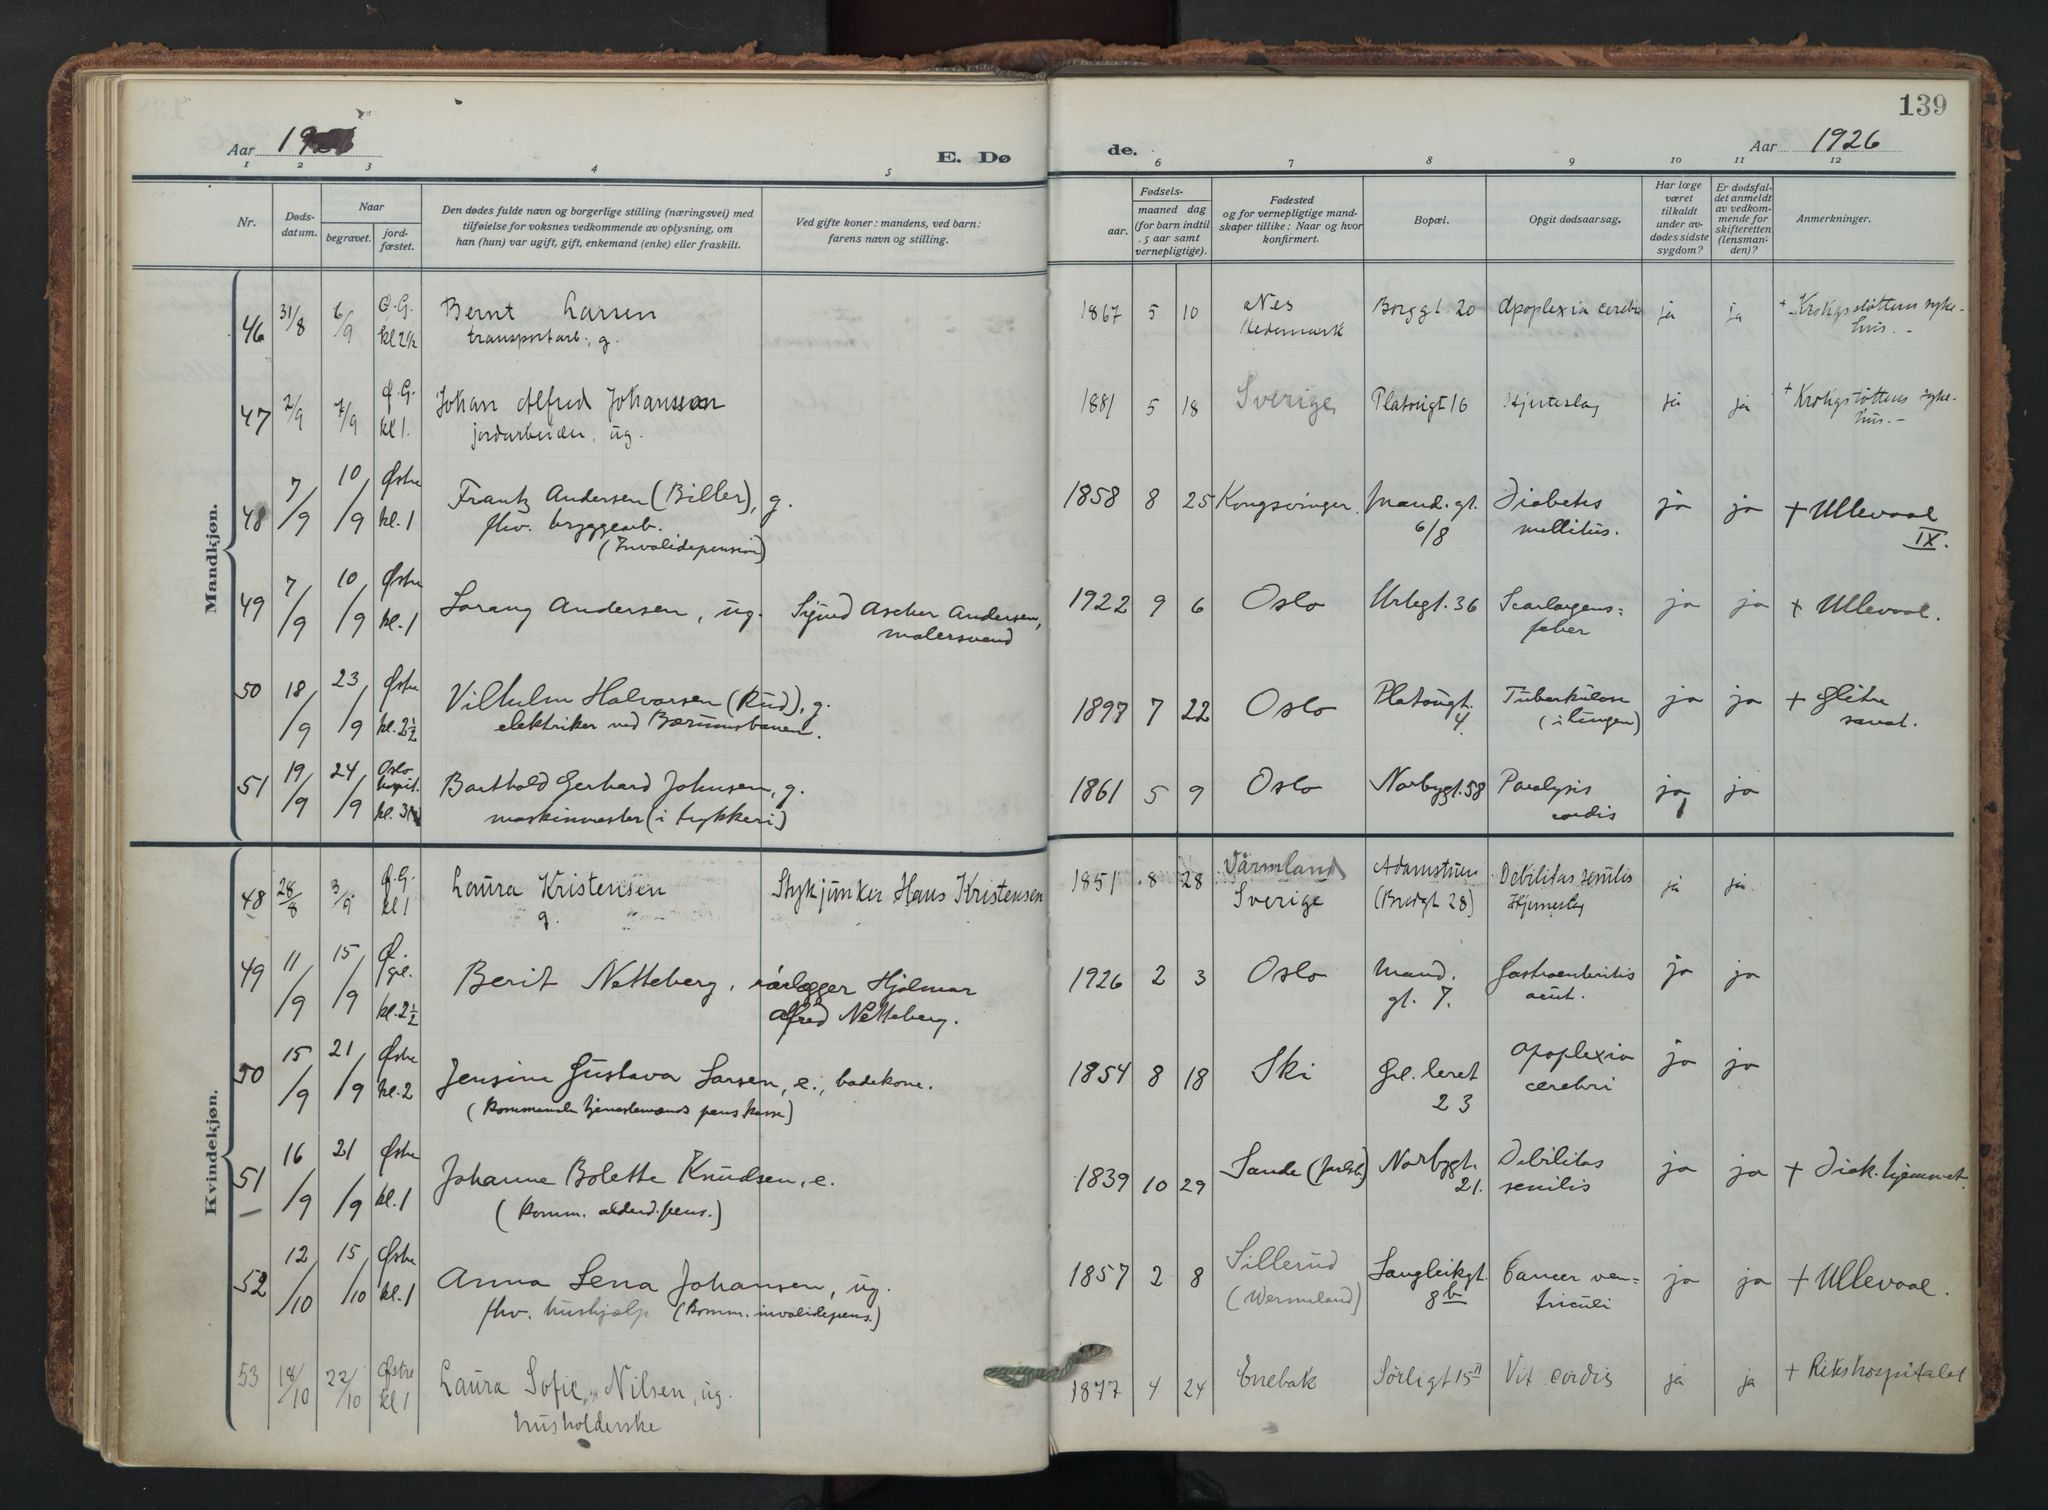 139
Aar 19
E. Dø
de.
Aar 1926
1 2 3 4 5 6 7 8 9 10 11 12
Nr.
Døds-
datum.
Naar
begravet.
jord-
fæstet.
Den dødes fulde navn og borgerlige stilling (næringsvei) med
tilføielse for voksnes vedkommende av oplysning, om
han (hun) var ugift, gift, enkemand (enke) eller fraskilt.
Ved gifte koner: mandens, ved barn:
farens navn og stilling.
Fødsels-
aar.
maaned dag
(for barn indtil
5 aar samt
vernepligtige).
Fødested
og for vernepligtige mand-
skaper tillike: Naar og hvor
konfirmert.
Bopæl.
Opgit dødsaarsag.
Har læge
været
tilkaldt
under av-
dødes sidste
sygdom?
Er dødsfal-
det anmeldt
av vedkom-
mende for
skifteretten
(lensman-
den)?
Anmerkninger.
Mandkjøn.
46 31/8 6/9 Ø.G. Bernt Larsen 1867 5 10 Nes Borggt. 20 Apoplexia cerebri ja ja + Krohgstøttens syke-
kl 2½ transportarb., g. Hedemark hus. -
47 2/9 7/9 Ø.G. Johan Alfred Johansson 1881 5 18 Sverige Platougt 16 Hjerteslag ja ja + Krohgstøttens syke-
kl 1. jordarbeider, ug. hus. -
48 7/9 10/9 Østre Frantz Andersen (Biller), g. 1858 8 25 Kongsvinger. Mand. gt. Diabetes ja ja + Ullevaal
kl. 1 fhv. bryggearb. 6/8 mellitus. IX.
(Invalidepension)
49 7/9 10/9 Østre Lorang Andersen, ug. Sigurd Ascher Andersen, 1922 9 6 Oslo Urtegt. 36 Scarlagens= ja ja + Ullevaal.
kl. 1 malersvend feber
50 18/9 23/9 Østre Vilhelm Halvorsen (Rud), g. 1897 7 22 Oslo Platougt. Tuberkulose ja ja + Glitre
kl. 2½ elektriker ved Bærumsbanen. 4. (i lungen) sanat.
51 19/9 24/9 Oslo Barthold Gerhard Johnsen, g. 1861 5 9 Oslo Norbygt. 58 Paralysis ja ja
hospit.
kl. maskinmester (i trykkeri) cordis
Kvindekjøn.
48 28/8 3/9 Ø.G. Laura Kristensen Stykjunker Hans Kristensen 1851 8 28 Värmland Debilitas senilis ja ja
kl 1 g. Sverige (Bredgt 28)
49 11/9 15/9 Ø. Berit Netteberg, rørlegger Hjalmar 1926 2 3 Oslo Mand. Gastroenteritis ja ja
grl.
kl. 2½ Alfred Netteberg. gt. 7. acut.
50 15/9 21/9 Østre Jensine Gustava Larsen, e., badekone. 1854 8 18 Ski Grl. leret Apoplexia ja ja
kl. 2 (Kommunale tjenestemænds pens.kasse) 23 cerebri
51 16/9 21/9 Østre Johanne Bolette Knudsen, e. 1839 10 29 Sande (Jarlsb.) Norbygt. Debilitas ja ja + Diak.hjemmet.
kl. 1 (Komm. alderd.pens.) 21. senilis
52 12/10 15/10 Østre Anna Lena Johansen, ug. 1857 2 8 Sillerud Langleikgt. Cancer ven= ja ja + Ullevaal.
kl. 1 fhv. hushjælp (Komm. invalidepens.) (Wermeland) 8b triculi
53 18/10 22/10 Østre Laura Sofie Nilsen, ug. 1877 4 24 Enebak Sørligt 15 II Vit. cordis ja ja + Rikshospitalet
kl 1 husholderske